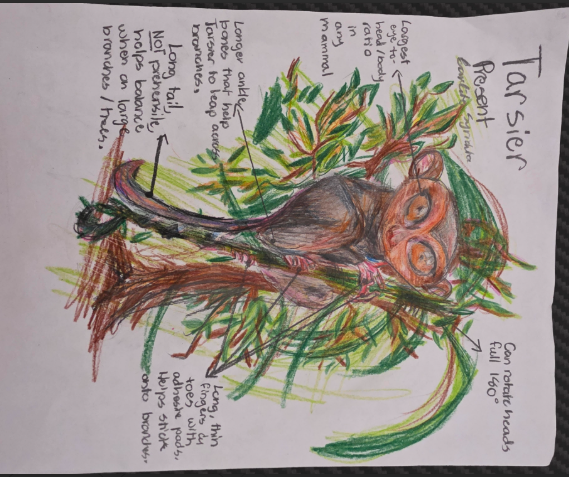 Tarsier
Present
Largest
eye-to-
head/body
ratio
in
any
mammal
Can rotate heads
full 180°
Longer ankle
bones that help
Tarsier to leap across
branches.
Long tail,
Not prehensile,
helps balance
when on large
branches / trees.
Long, thin
fingers &
toes with
adhesive pads.
Helps stick
onto branches.